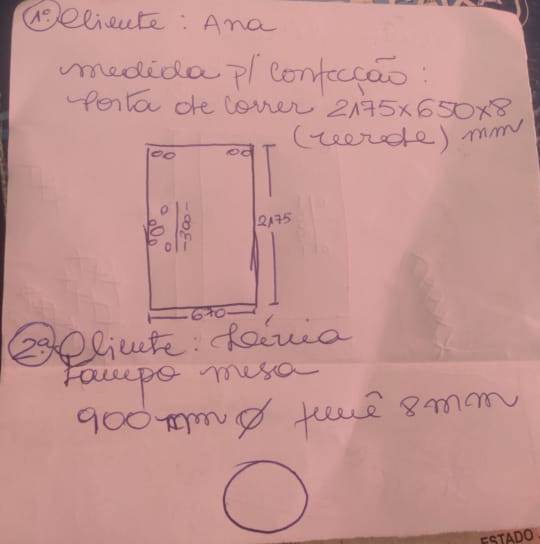 1º Cliente: Ana
medida p/ confecção:
Porta de correr 2175x650x8
(verde) mm
2175
300
670
2º Cliente:
Tampo mesa
900 mm Ø fumê 8mm
ESTADO